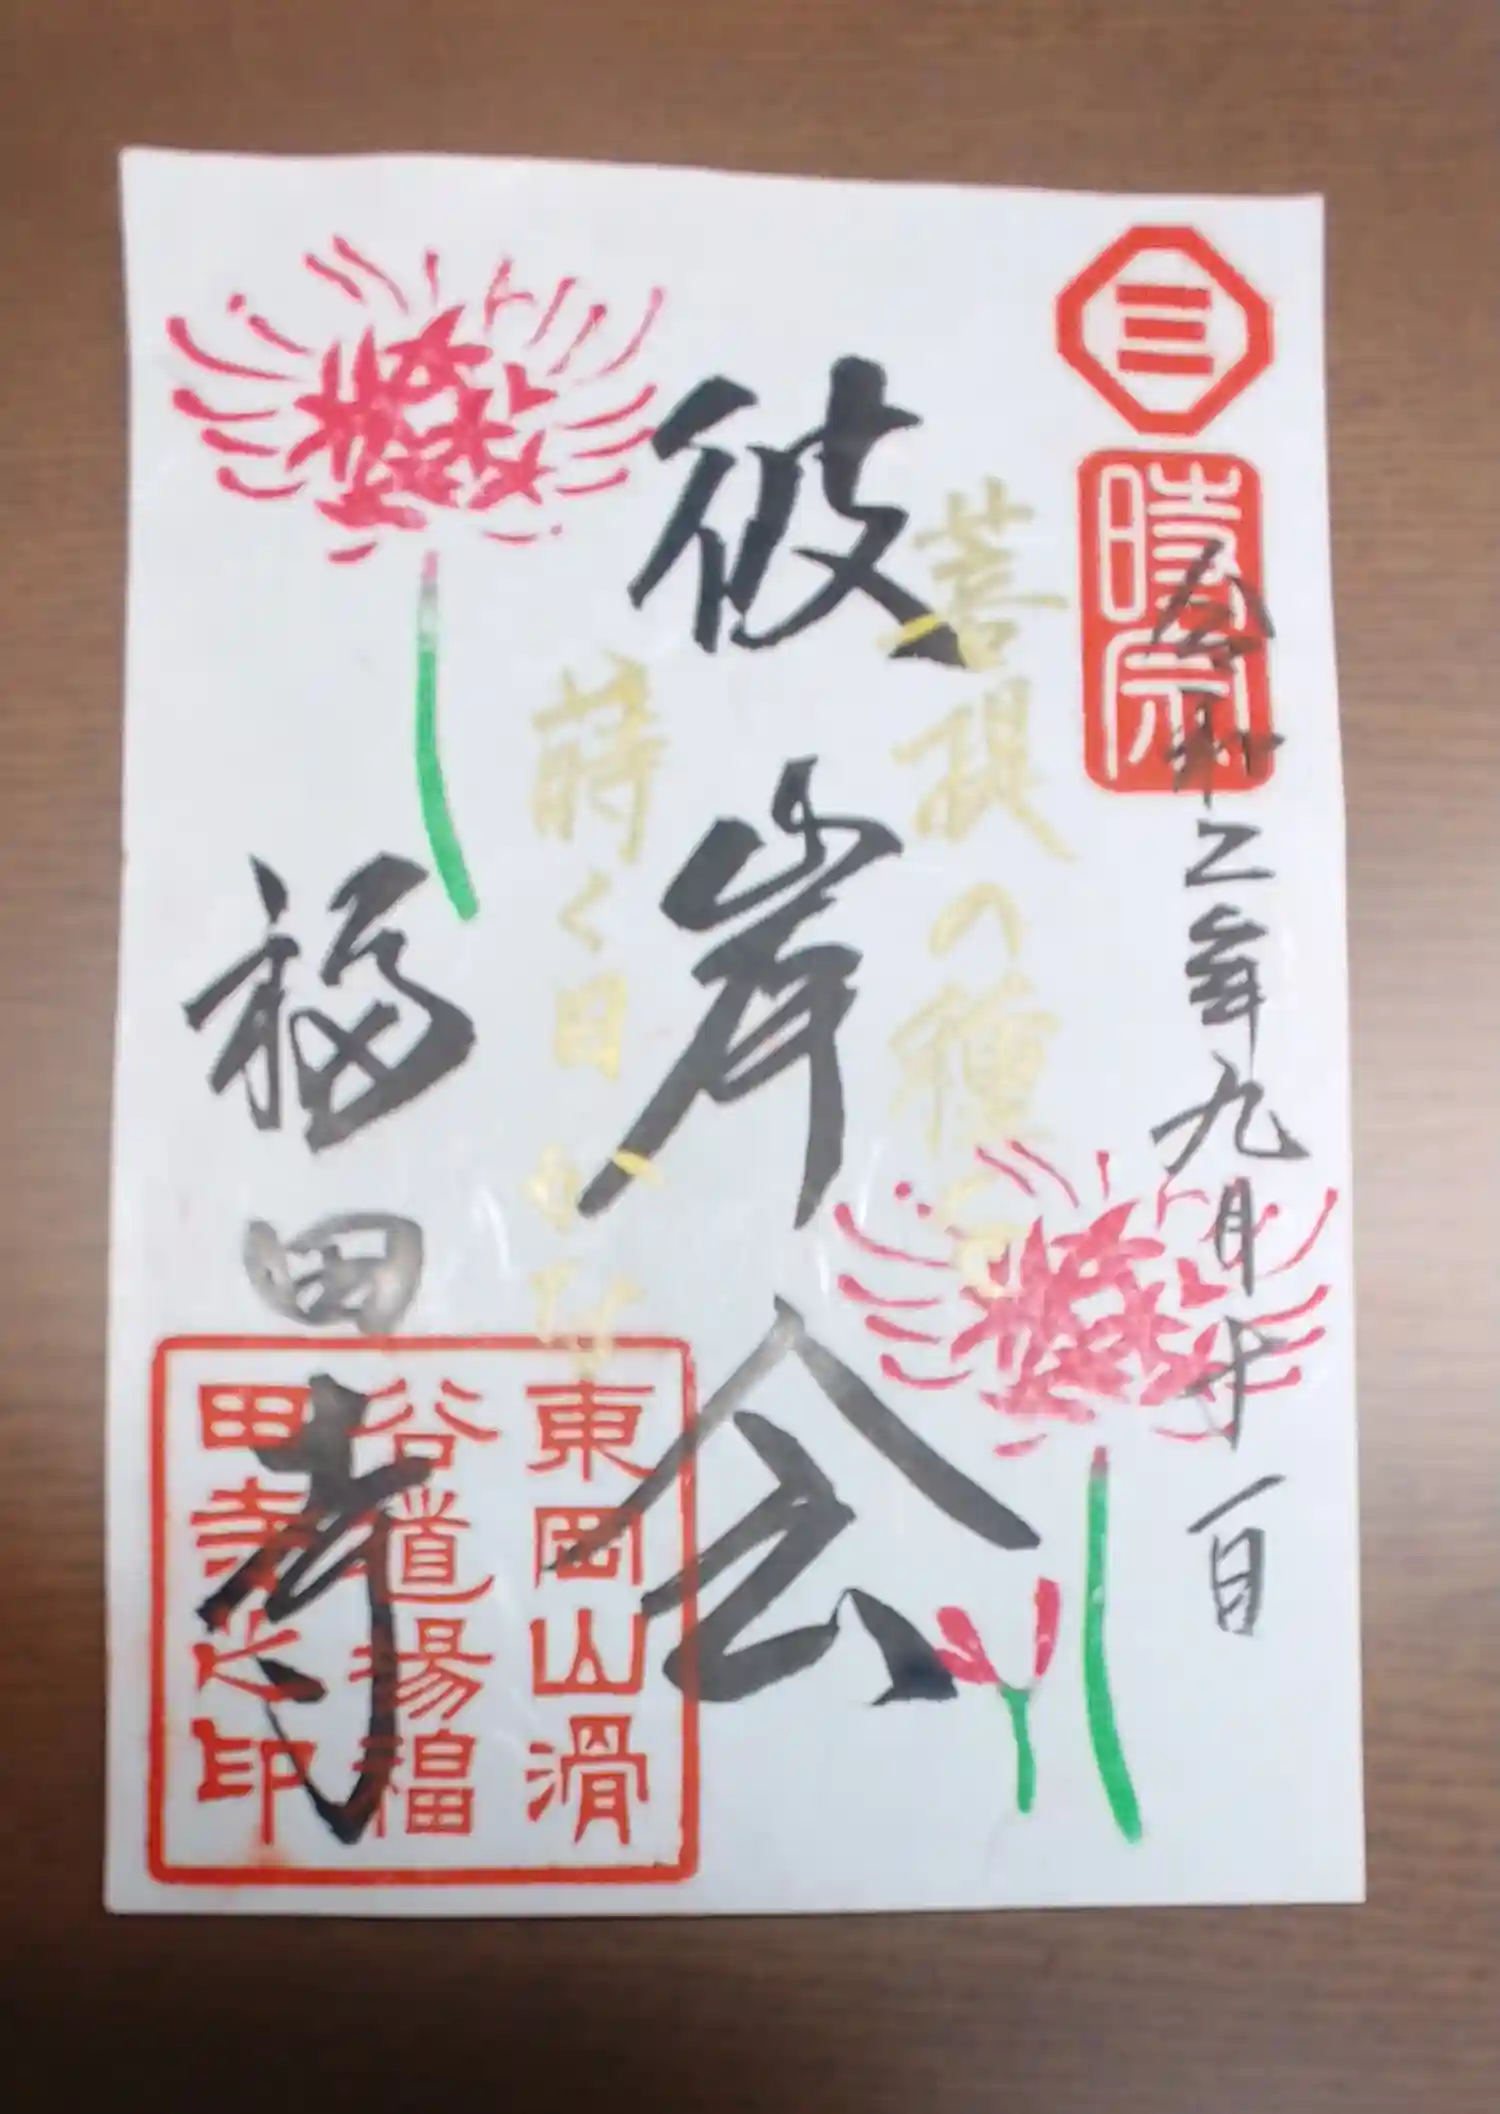 時宗
令和二年九月十一日
菩提の種
彼岸会
蒔く日かな
福田寺
東岡山滑
谷道場福
田寺之印